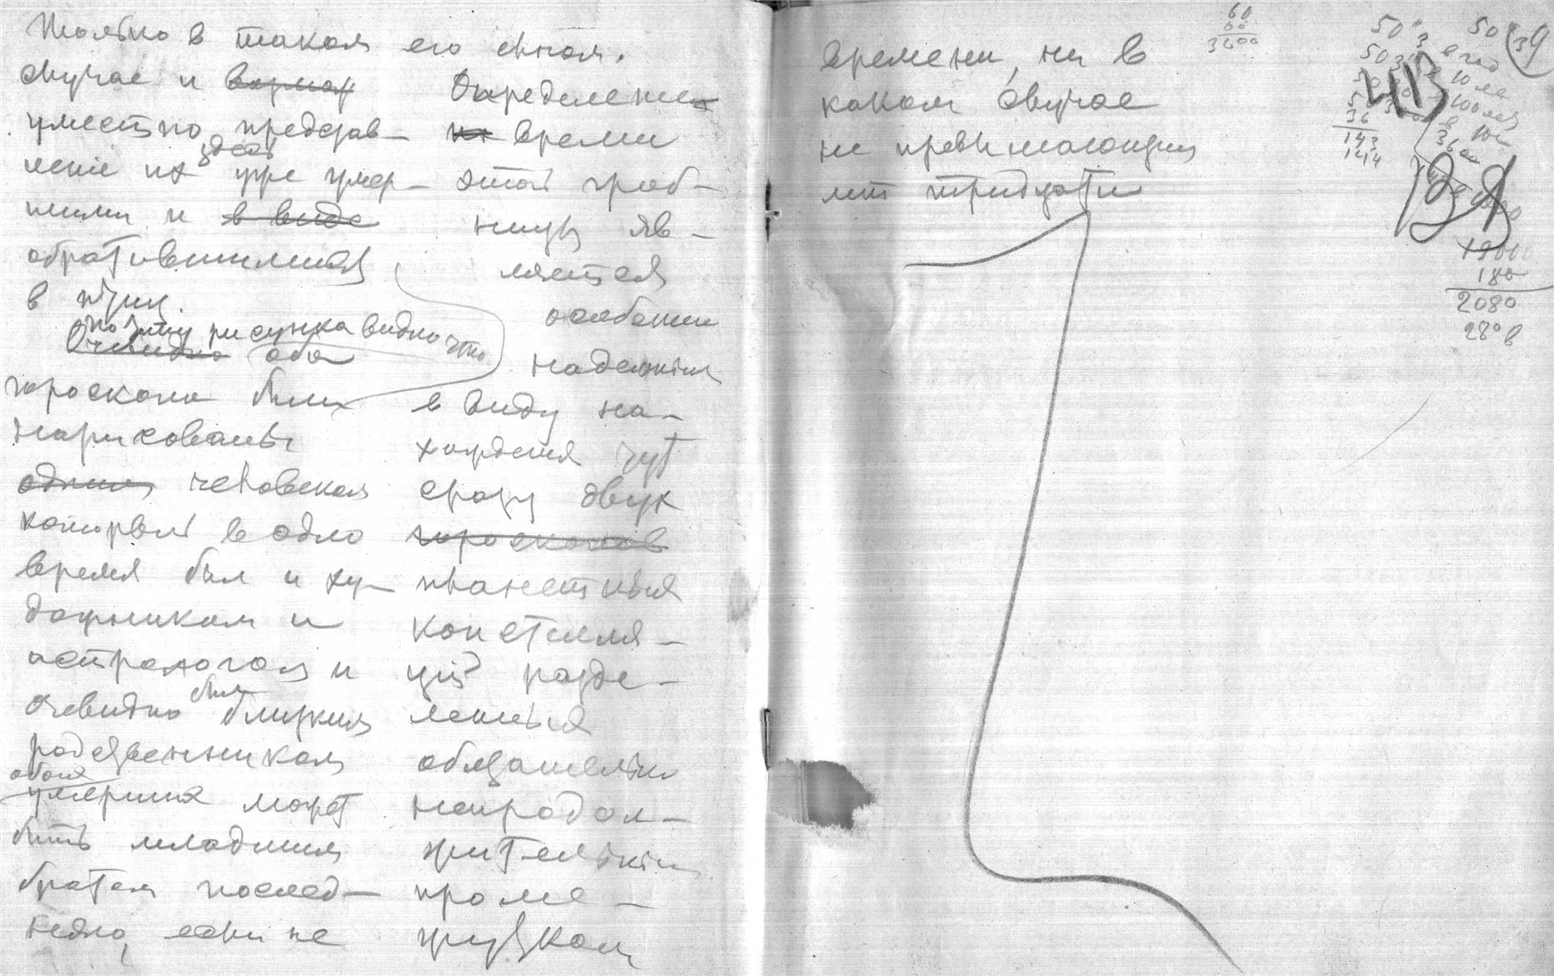 только в таком
случае и
уместно представ-
здесь
ление их уже умер-
шими и в виде
обратившимися
в птиц.
по этому рисунка видно что
Очевидно оба
гороскопа были
нарисованы
одним человеком
который в одно
время был и ху-
дожником и
астрологом и
был
очевидно близким
родственником
обоих
умерших может
быть младшим
братом послед-
няго, если не
его сыном.
Определение
времени
этой гроб-
ницы яв-
ляется
особенно
надежным
в виду на-
хождения тут
сразу двух
гороскопов
планетных
констелля-
ций разде-
ленных
обязательно
непродол-
жительным
проме-
жутком
времени, ни в
каком случае
не превышающим
лет тридцати
60
60
3600
50
50
39
36
143
144
113
180
2080